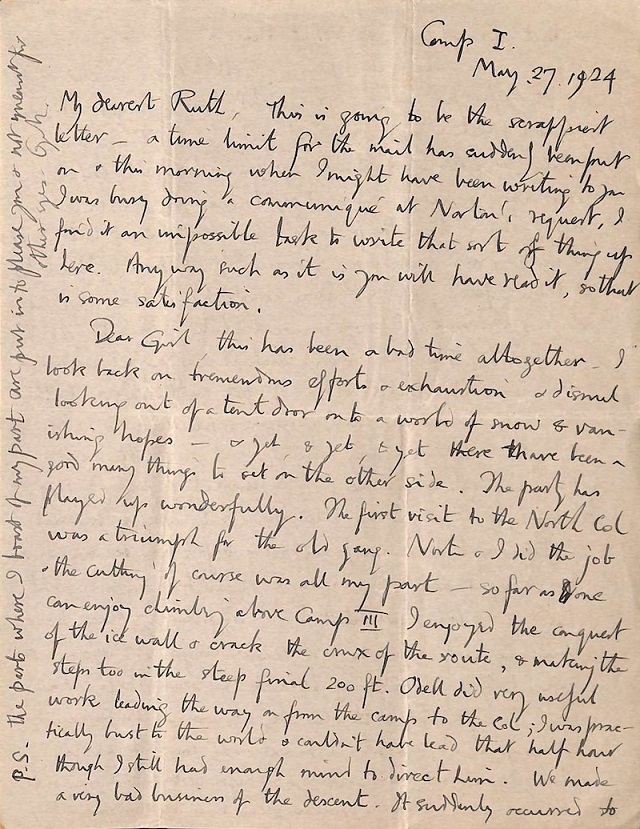 Camp I.
May 27. 1924
My dearest Ruth, This is going to be the scrappiest
letter – a time limit for the mail has suddenly been put
on & this morning when I might have been writing to you
I was busy doing a communiqué at Norton's request, I
find it an impossible task to write that sort of thing up
here. Anyway such as it is you will have read it, so that
is some satisfaction.
Dear Girl this has been a bad time altogether – I
look back on tremendous efforts & exhaustion & dismal
looking out of a tent door on to a world of snow & van-
ishing hopes – & yet, & yet, & yet there have been a
good many things to set on the other side. The party has
played up wonderfully. The first visit to the North Col
was a triumph for the old gang. Norton & I did the job
& the cutting of course was all my part – so far as one
can enjoy climbing above Camp III I enjoyed the conquest
of the ice wall & crack the crux of the route, & making the
steps too in the steep final 200 ft. Odell did very useful
work leading the way on from the camp to the Col; I was prac-
tically bust to the world & couldn't have lead that half hour
though I still had enough mind to direct him. We made
a very bad business of the descent. It suddenly occurred to
P.S. the parts where I boast of my part are put in to please you & not meant for
other eyes. G.M.